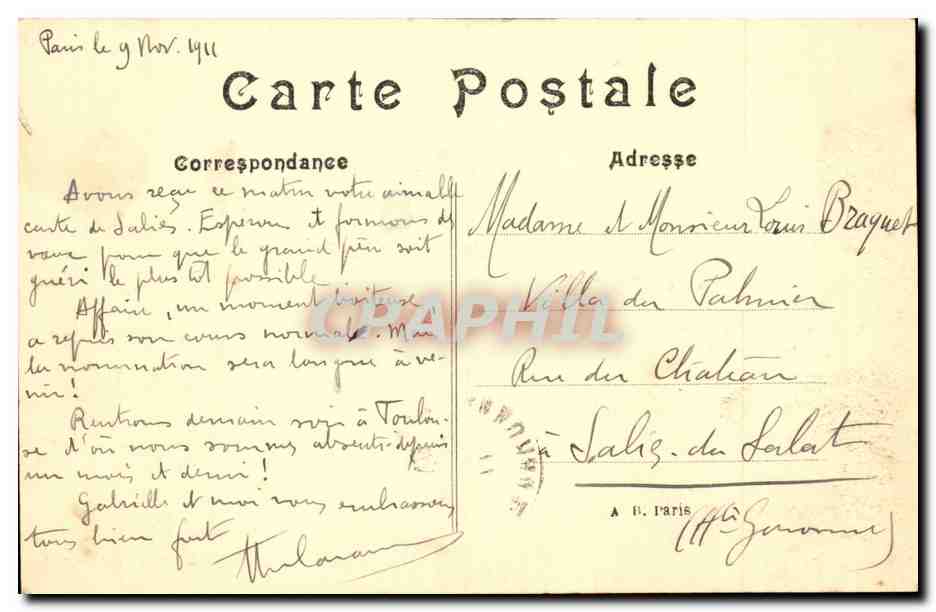 Paris le 9 Nov. 1911
Carte Postale
Correspondance
Adresse
Avons reçu ce matin votre aimable
carte de Salies. Esperons et formons des
vœux pour que le grand père soit
guéri le plus tôt possible
Affaire, un moment boiteuse,
a repris son cours normal. Mais
la nomination sera longue à ve-
nir!
Rentrons demain soir à Toulou-
se d'où nous sommes absents depuis
un mois et demi!
Gabrielle et moi vous embrassons
tous bien fort
Madame et Monsieur Louis Braquet
Villa du Palmier
Rue du Château
à Salies-du-Salat
(Hte Garonne)
A B. Paris
CPAPHIL